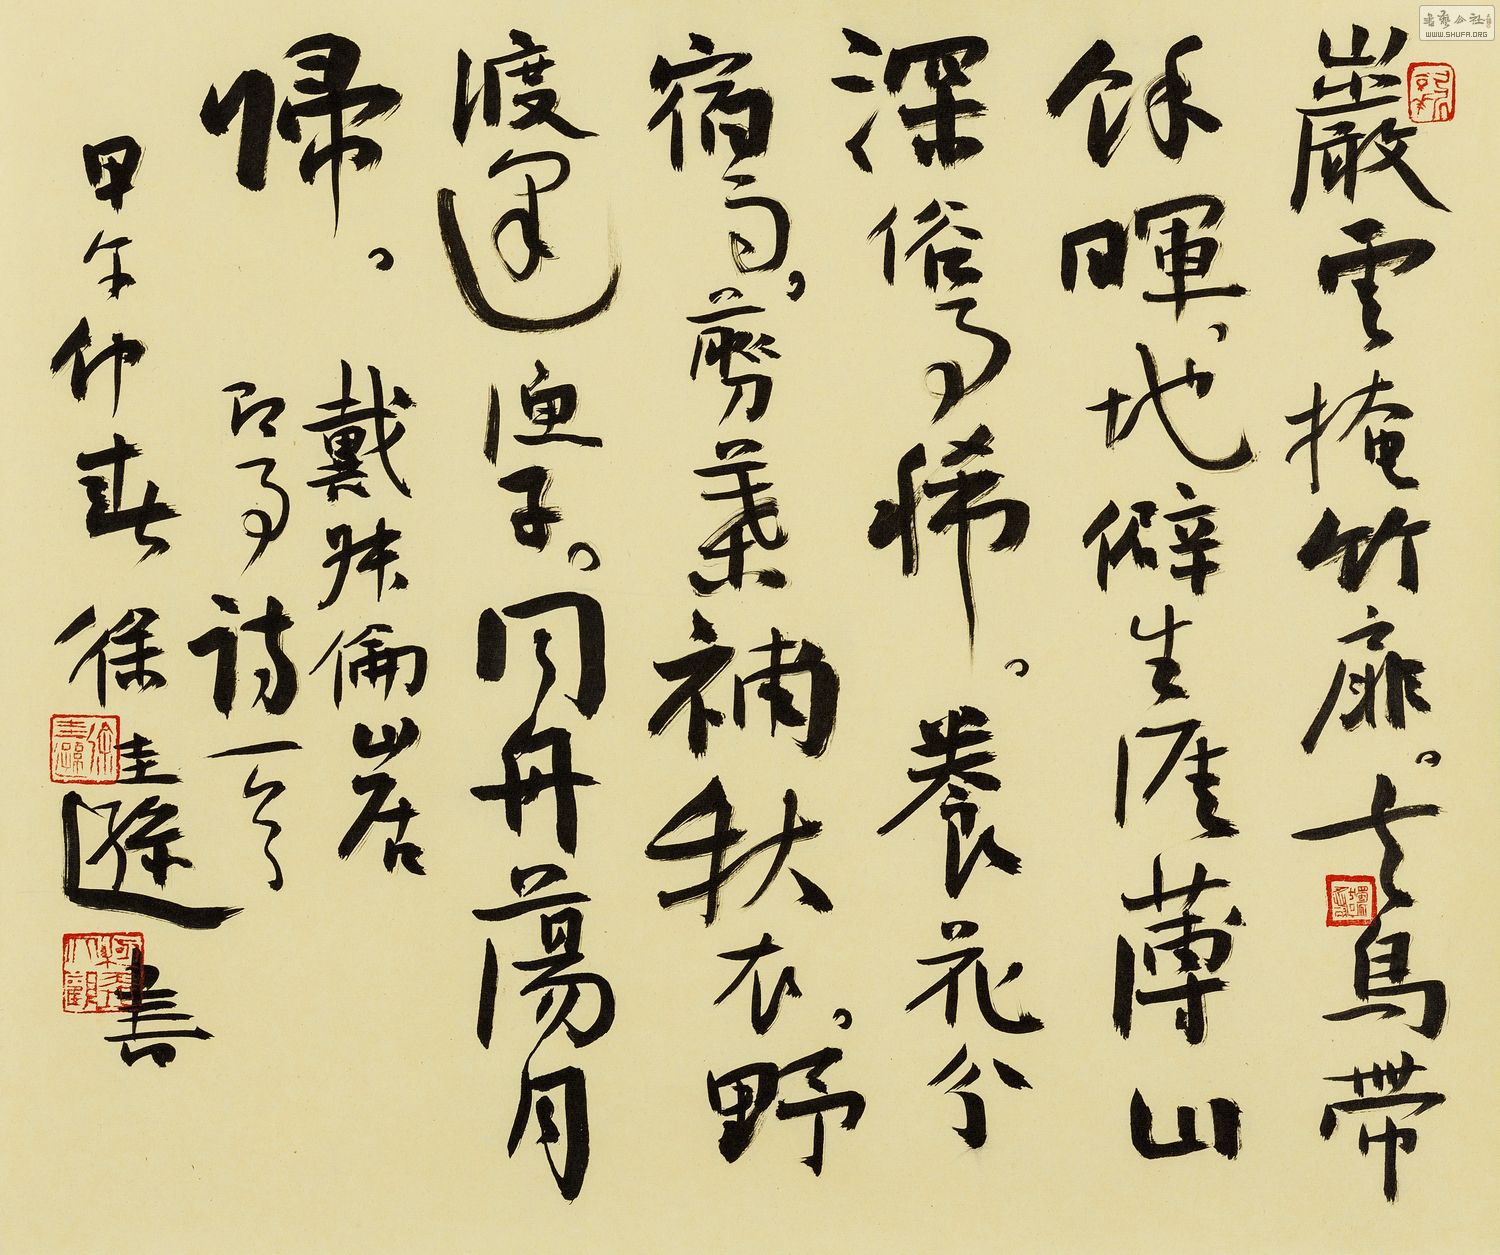 巖雲掩竹扉。去鳥帶
餘暉，地僻生涯薄山
深俗事稀。養花分
宿雨，剪葉補秋衣。野
渡逢漁子。同舟蕩月
歸。
戴叔倫山居
即事詩一首
甲午仲春徐圭遜書
徐圭遜
WWW.SHUFA.ORG